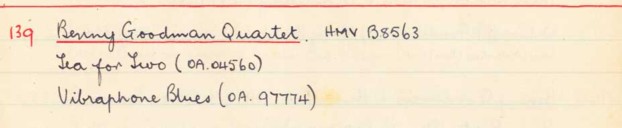 139 Benny Goodman Quartet. HMV B8563
Tea for Two (OA.04560)
Vibraphone Blues (OA.97774)